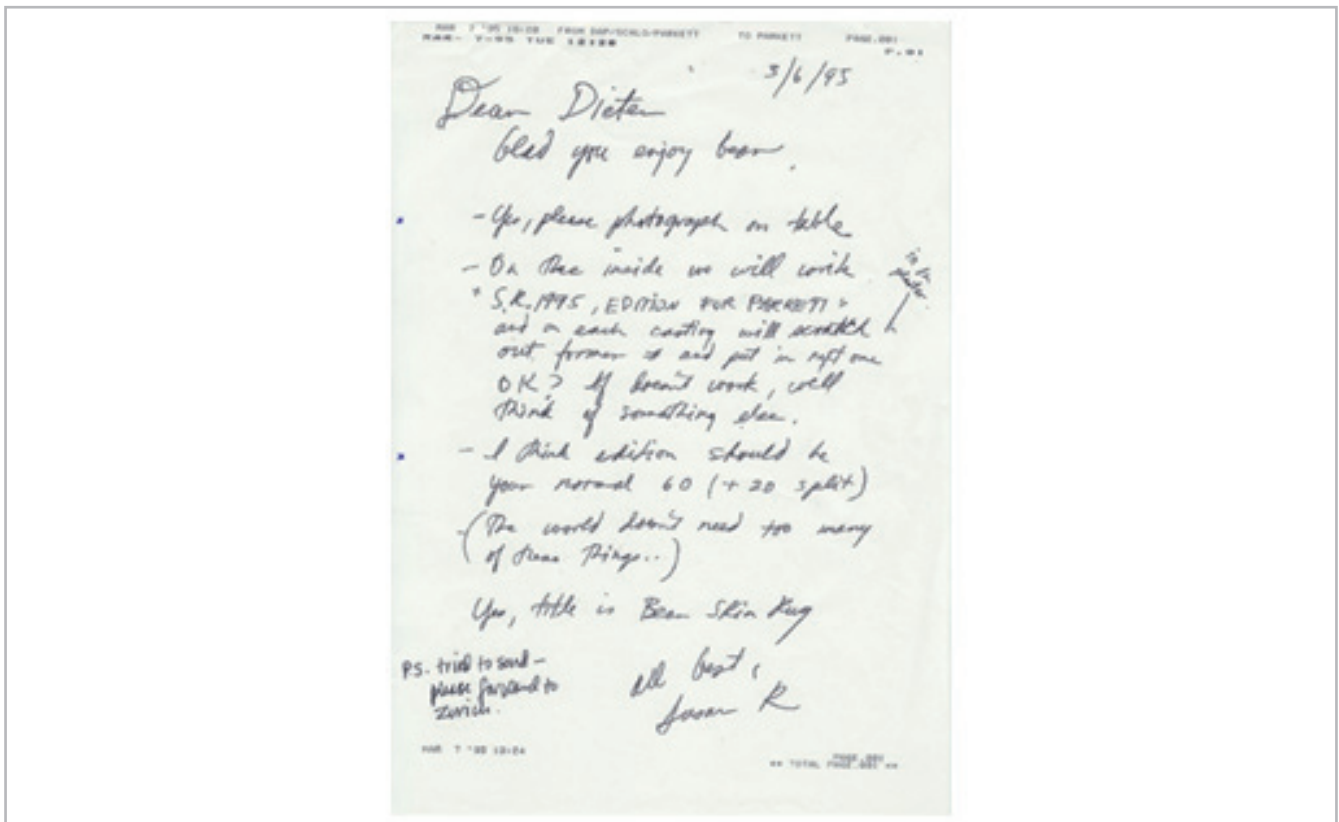 MAR 7 '95 FROM DAP/SCALO/PARKETT TO PARKETT PAGE.001
MAR- 7-95 TUE 12:26 P.01
3/6/95
Dear Dieter
Glad you enjoy bear.
- Yes, please photograph on table
- On the inside we will write
"S.R. 1995, EDITION FOR PARKETT"
and on each casting will scratch
out former # and put in next one
OK? If doesn't work, we'll
think of something else.
- I think edition should be
your normal 60 (+ 20 split)
- (The world doesn't need too many
of these things..)
Yes, title is Bear Skin Rug
All best,
Susan R
P.S. tried to send -
please forward to
Zurich.
MAR 7 '95 PAGE.001
** TOTAL PAGE.001 **